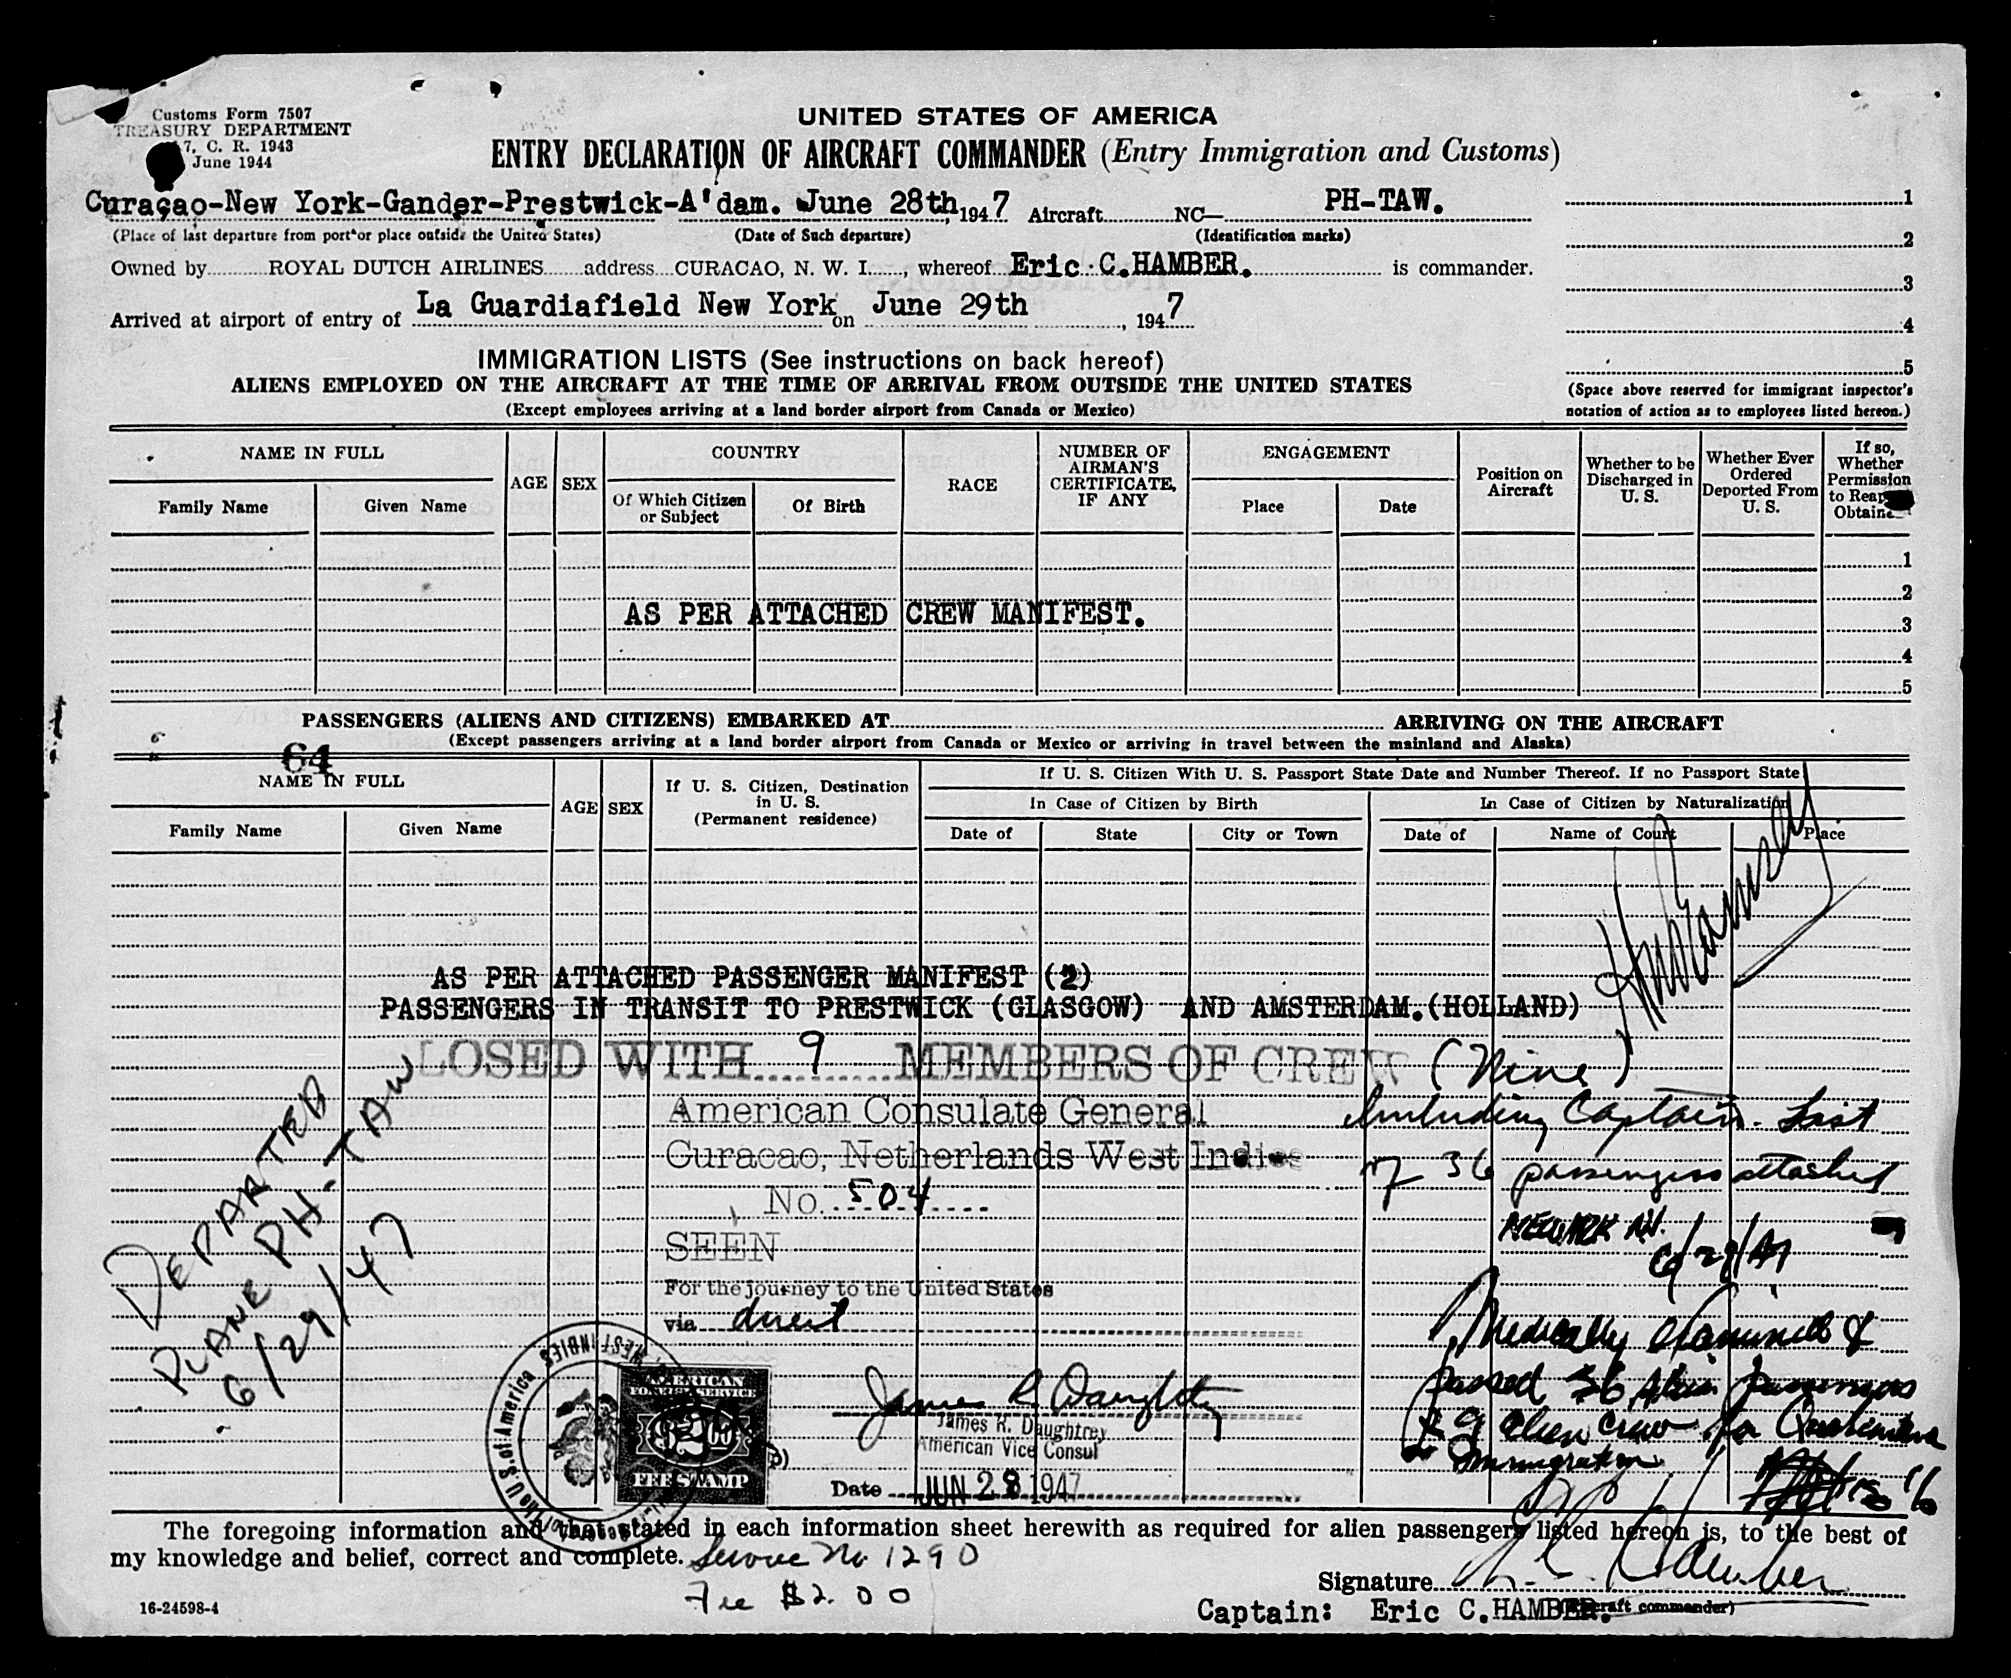 Customs Form 7507
TREASURY DEPARTMENT
7, C. R. 1943
June 1944
UNITED STATES OF AMERICA
ENTRY DECLARATION OF AIRCRAFT COMMANDER (Entry Immigration and Customs)
Curaçao-New York-Gander-Prestwick-A'dam. June 28th, 1947 Aircraft NC— PH-TAW.
(Place of last departure from port or place outside the United States) (Date of Such departure) (Identification marks)
Owned by ROYAL DUTCH AIRLINES address CURACAO, N. W. I., whereof Eric C.HAMBER. is commander.
Arrived at airport of entry of La Guardiafield New York on June 29th, 1947
1
2
3
4
5
(Space above reserved for immigrant inspector's
notation of action as to employees listed hereon.)
IMMIGRATION LISTS (See instructions on back hereof)
ALIENS EMPLOYED ON THE AIRCRAFT AT THE TIME OF ARRIVAL FROM OUTSIDE THE UNITED STATES
(Except employees arriving at a land border airport from Canada or Mexico)
NAME IN FULL
Family Name Given Name
AGE SEX
COUNTRY
Of Which Citizen or Subject Of Birth
RACE
NUMBER OF AIRMAN'S CERTIFICATE, IF ANY
ENGAGEMENT
Place Date
Position on Aircraft
Whether to be Discharged in U. S.
Whether Ever Ordered Deported From U. S.
If so, Whether Permission to Reap Obtaine
1
2
AS PER ATTACHED CREW MANIFEST.
3
4
5
PASSENGERS (ALIENS AND CITIZENS) EMBARKED AT ARRIVING ON THE AIRCRAFT
(Except passengers arriving at a land border airport from Canada or Mexico or arriving in travel between the mainland and Alaska)
64
NAME IN FULL
Family Name Given Name
AGE SEX
If U. S. Citizen, Destination in U. S.
(Permanent residence)
If U. S. Citizen With U. S. Passport State Date and Number Thereof. If no Passport State
In Case of Citizen by Birth In Case of Citizen by Naturalization
Date of State City or Town Date of Name of Court Place
AS PER ATTACHED PASSENGER MANIFEST (2)
PASSENGERS IN TRANSIT TO PRESTWICK (GLASGOW) AND AMSTERDAM.(HOLLAND)
LOSED WITH 9 MEMBERS OF CREW (Nine)
American Consulate General including Captain. List
Curacao, Netherlands West Indies of 36 passengers attached
No. 504
NEWARK N.J.
6/29/47
SEEN
For the journey to the United States
via direct
Medically Examined &
passed 36 Alien Passengers
& 9 Alien Crew for Quarantine
or Immigration
DEPARTED
PLANE PH-TAW
6/29/47
of the U.S. of America
WEST INDIES
AMERICAN
FOREIGN SERVICE
$2.00
FEE STAMP
James R Daughtrey
James R. Daughtrey
American Vice Consul
Date JUN 28 1947
The foregoing information and that stated in each information sheet herewith as required for alien passengers listed hereon is, to the best of
my knowledge and belief, correct and complete.
Service No 1290
Fee $2.00
Signature E. C. Hamber
(Aircraft commander)
Captain: Eric C.HAMBER.
16-24598-4